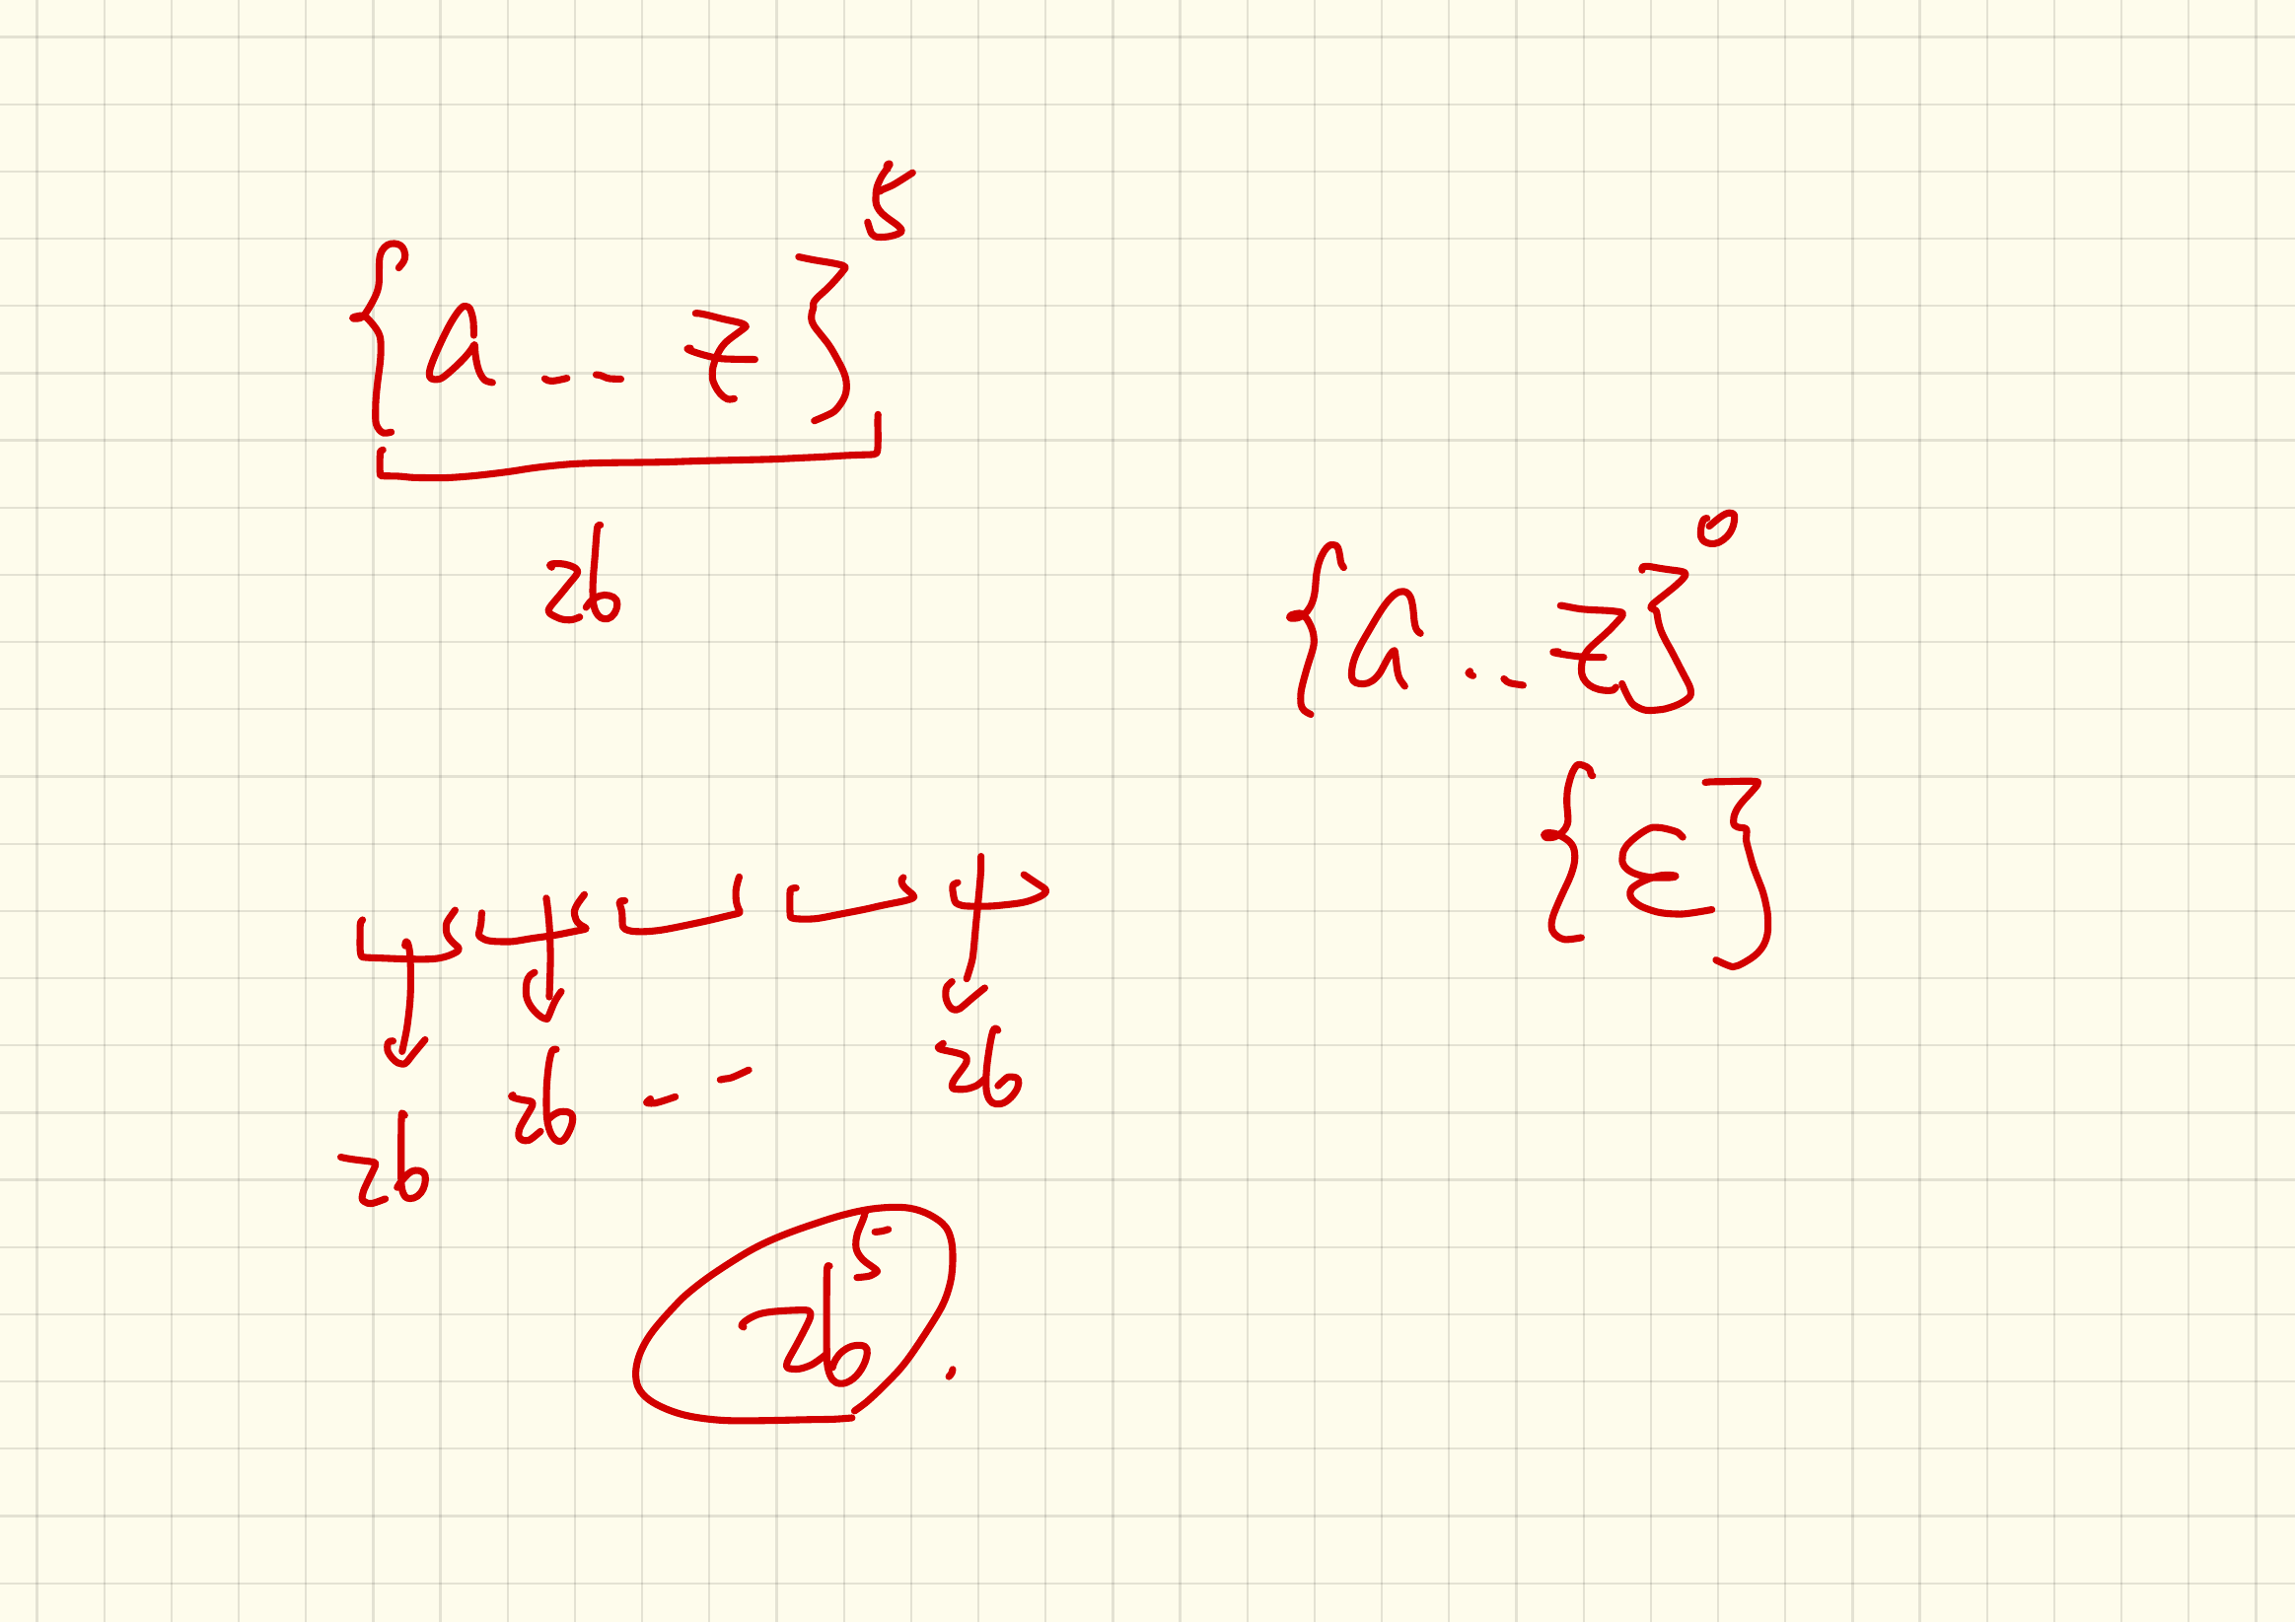 {a -- z}⁵
26
{a .. z}⁰
{ε}
26 26 -- 26
26⁵.